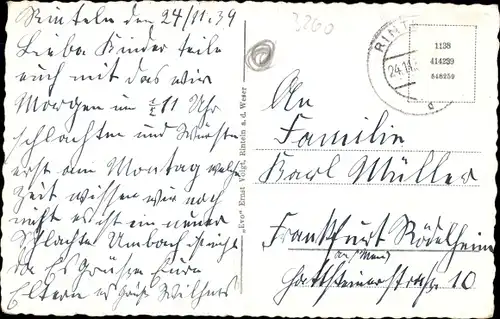 Rinteln den 24/11.39
Liebe Kinder teile
euch mit das wir
Morgen um ½ 11 Uhr
schlachten und Wursten
erst am Montag welche
Zeit wissen wir noch
nicht es ist ein neuer
Schlachter Umbach ist nicht
da Es Grüßen Eure
Eltern es grüßt Wilhelm
3260
"Evo" Ernst Voigt, Rinteln a. d. Weser
RINT
24.11.
1138
414239
648250
An
Familie
Karl Müller
Frankfurt Rödelheim
am Main
Hattsteinerstraße 10